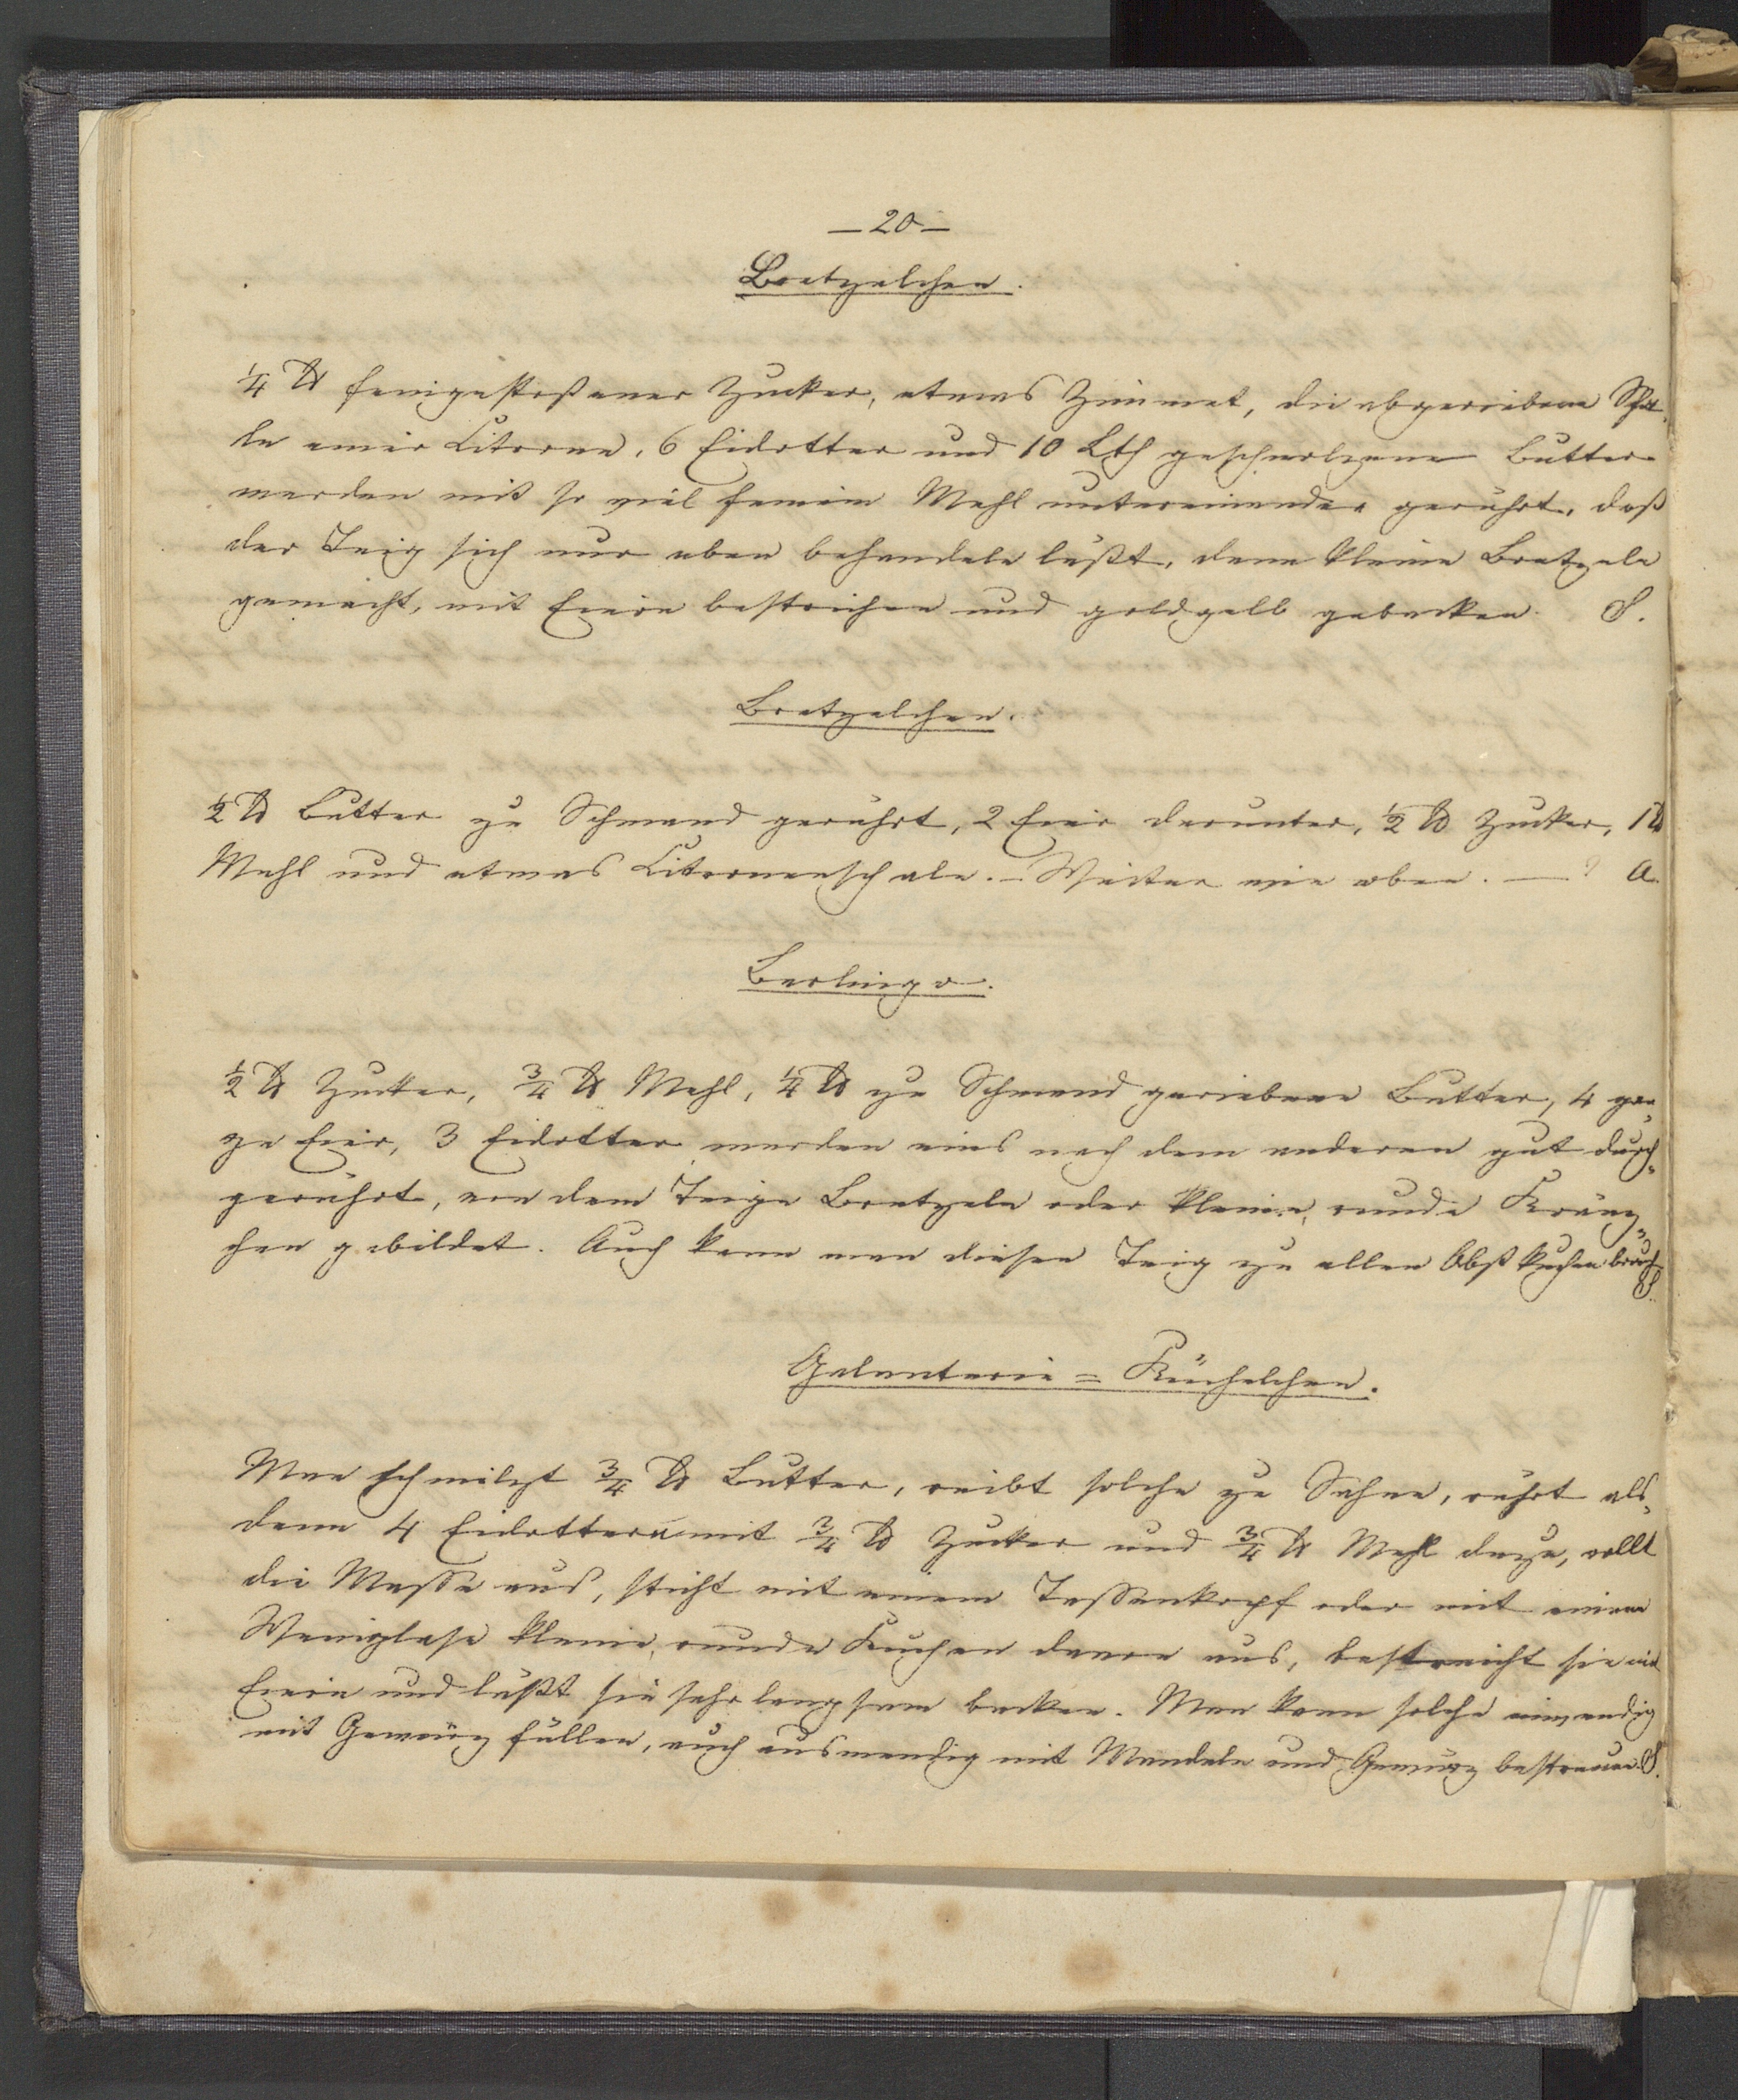 — 20 —
Bretzelchen.
1/4 ℔ feingestoßener Zucker, etwas Zimmet, die abgeriebene Scha-
le einer Citrone, 6 Eidotter und 10 Lth geschmolzene Butter
werden mit so viel feinem Mehl untereinander gerührt, daß
der Teig sich nur eben behandeln läßt, dann kleine Bretzeln
gemacht, mit Eiern bestrichen und goldgelb gebacken. S.
Bretzelchen.
1/2 ℔ Butter zu Schmand gerührt, 2 Eier darunter, 1/2 ℔ Zucker, 1 ℔
Mehl und etwas Citronenschale. – Weiter wie oben. — ? A.
Berlingo.
1/2 ℔ Zucker, 3/4 ℔ Mehl, 1/4 ℔ zu Schmand geriebene Butter, 4 gan-
ze Eier, 3 Eidotter werden eins nach dem anderen gut durch-
gerührt, von dem Teige Bretzeln oder kleine, runde Kränz-
chen gebildet. Auch kann man diesen Teig zu allen Obstkuchen brauch
S.
Galanterie = Küchelchen.
Man schmilzt 3/4 ℔ Butter, reibt solche zu Sahne, rührt als-
dann 4 Eidottern mit 3/4 ℔ Zucker und 3/4 ℔ Mehl dazu, rollt
die Masse aus, sticht mit einem Tassenkopf oder mit einem
Weinglase kleine, runde Kuchen davon aus, bestreicht sie mit
Eiern und läßt sie sehr langsam backen. Man kann solche inwendig
mit Gewürz füllen, auch auswendig mit Mandeln und Gewürz bestreuen. S.